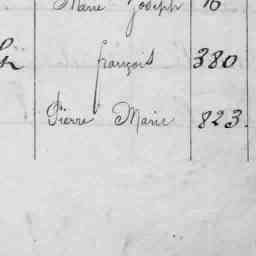 Marie Joseph 76
françois 380
Pierre Marie 823.